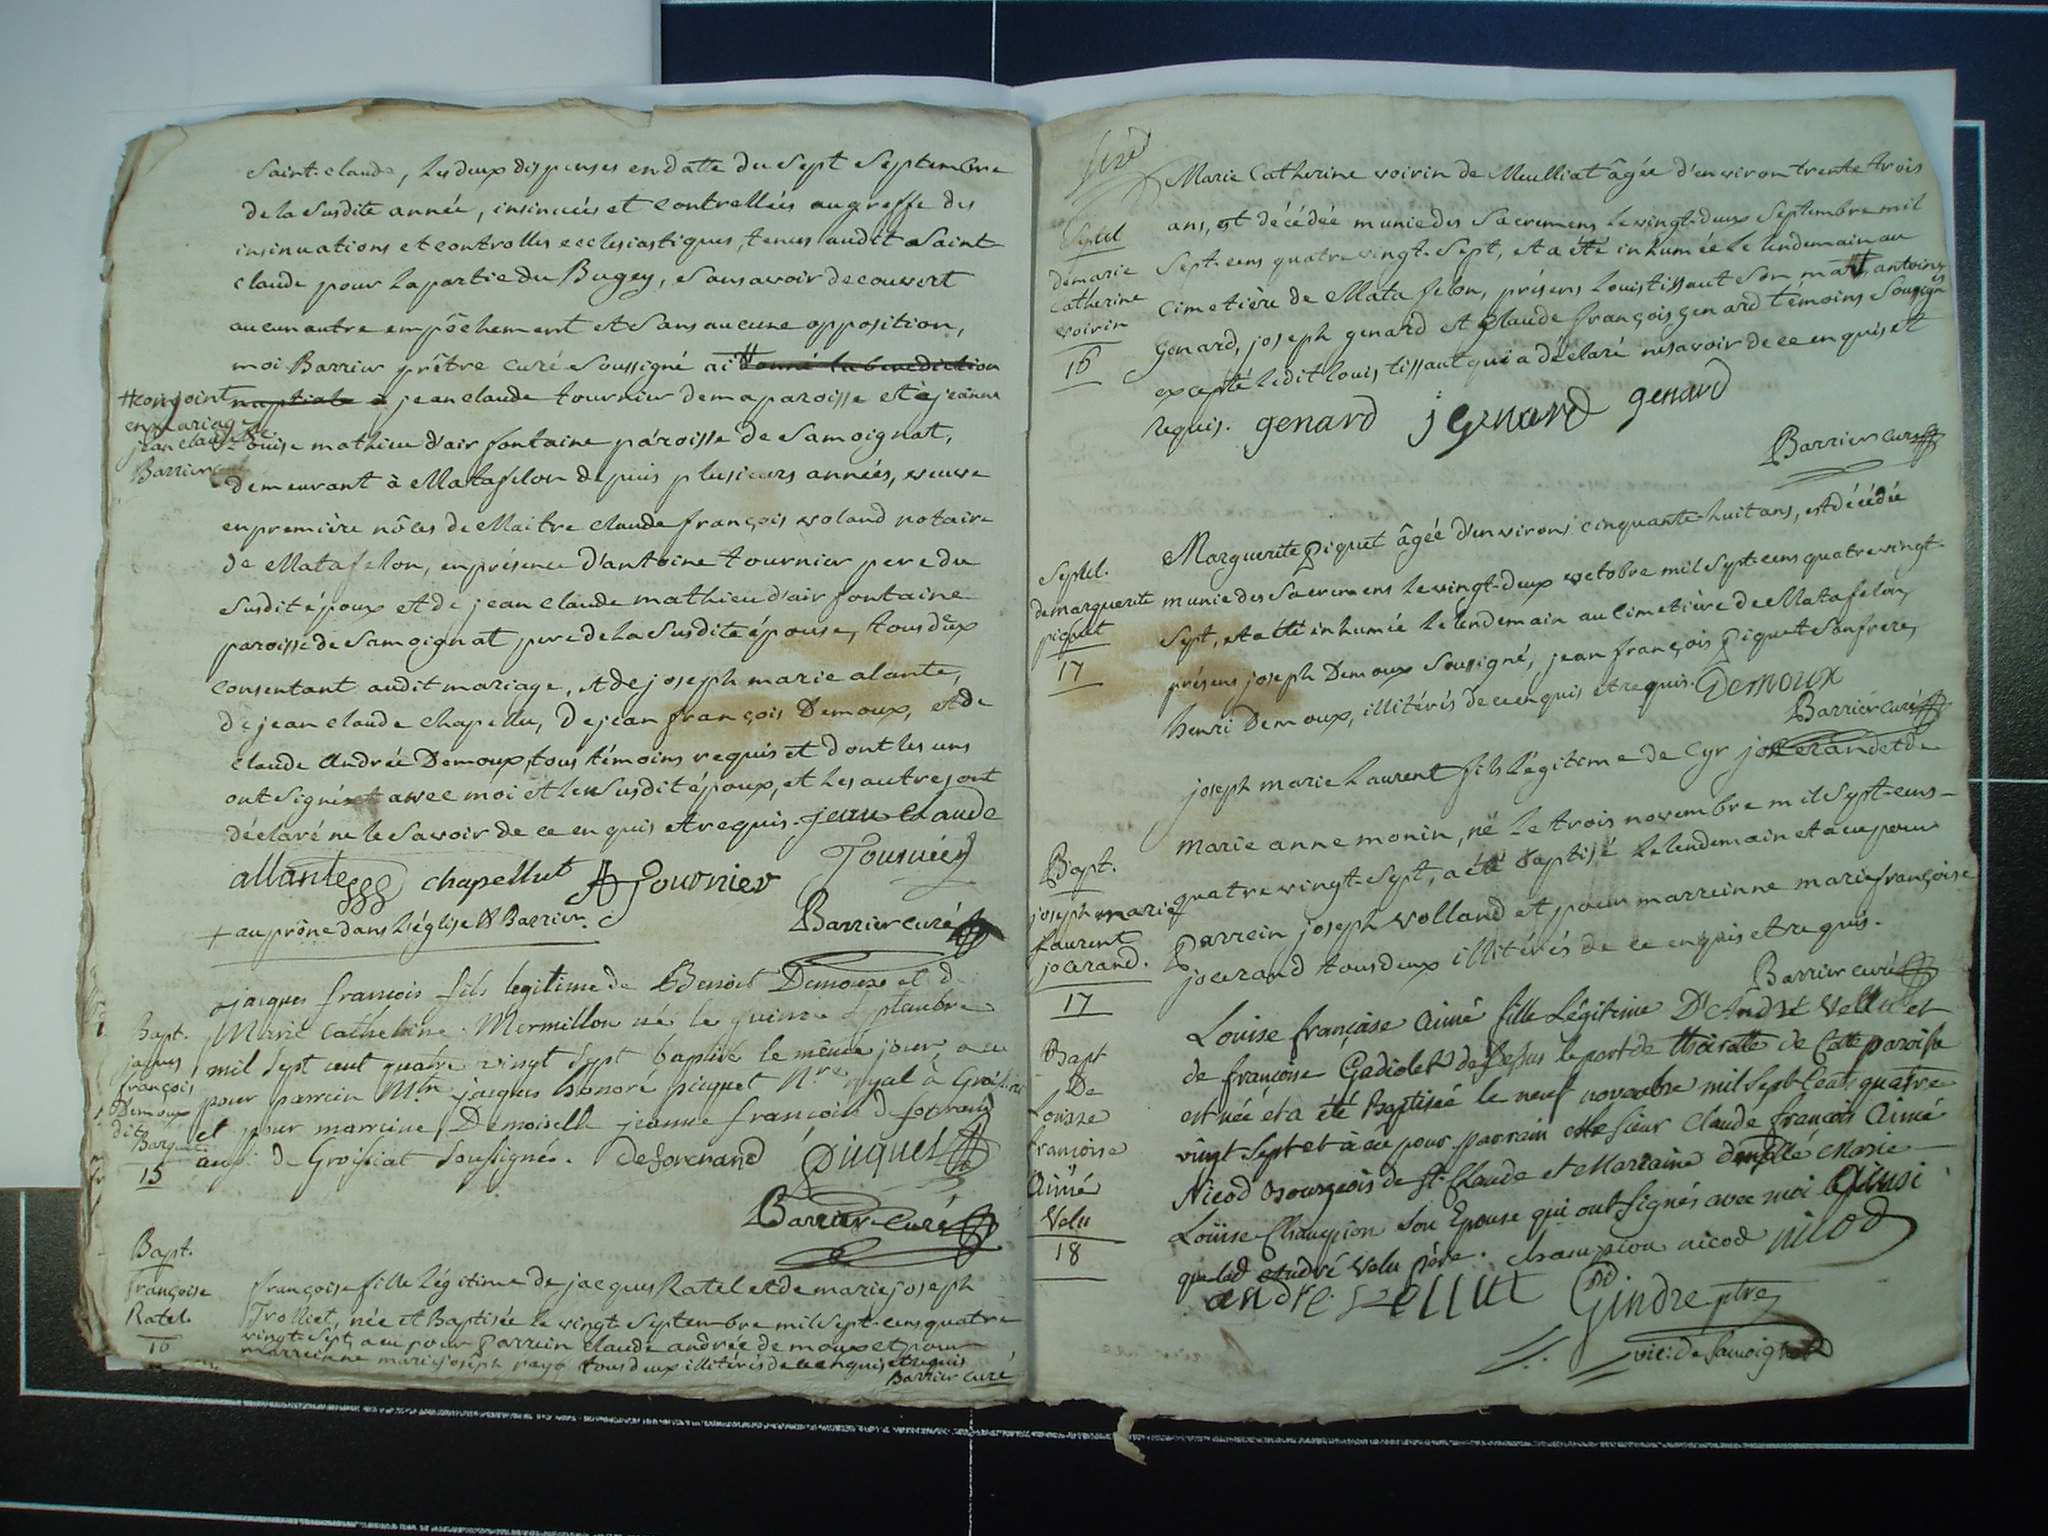 Saint-claude, les deux dispenses en datte du sept Septembre
de la susdite année, insinuées et controllées au greffe des
insinuations et controlles ecclesiastiques, tenus audit Saint
claude pour la partie du Bugey, sans avoir decouvert
aucun autre empêchement et sans aucune opposition,
moi Barrier prêtre curé soussigné ai # donné la benediction
# conjoint
en mariage
jean claude
Barrier curé
nuptiale à jean claude tournier de ma paroisse et à jeanne
Louise mathieu d'air fontaine paroisse de Samoignat,
demeurant à Matafelon depuis plusieurs années, veuve
en première nôces de Maitre claude françois voland notaire
de Matafelon, en présence d'antoine tournier pere du
susdit époux et de jean claude mathieu d'air fontaine
paroisse de Samoignat pere de la susdite épouse, tous deux
consentant audit mariage, et de joseph marie alante,
de jean claude chapellu, de jean françois Demoux, et de
claude Andrée Demoux, tous témoins requis et dont les uns
ont signés avec moi et le susdit époux, et les autres ont
déclaré ne le savoir de ce enquis et requis. jean claude
allante chapellut A Tournier Tournier
+ au prône dans l'église Barrier. Barrier curé
Bapt.
jaques
françois
Demoux
dit
15
jacques francois fils legitime de Benoit Demoux et de
Marie Catherine Mermillon né le quinze Septembre
mil sept cent quatre vingt sept baptisé le même jour, a eu
pour parrein Mtre jacques honoré picquet Nre royal à Groissiat
et pour marreine Demoiselle jeanne françoise de forcrand
aussi de Groissiat soussignés. deforcrand picquet
Barrier curé
Bapt.
françoise
Ratel.
16
françoise fille légitime de jacques Ratel et de marie joseph
Trolliet, née et Baptisée le vingt Septembre mil sept-cens quatre
vingt-sept a eu pour Parrein claude andrée de moux et pour
marreinne marie joseph tous deux illitérés de ce enquis et requis
Barrier curé
Sepul
de marie
catherine
voirin
16
Marie Catherine voirin de Meulliat âgée d'environ trente trois
ans, est décédée munie des Sacremens le vingt-deux Septembre mil
Sept-cens quatre vingt-sept, et a été inhumée le lendemain au
cimetière de Matafelon, présens Louis tissaut son mari, antoine
Genard, joseph genard et Claude françois genard témoins soussignés
excepté ledit louis tissaut qui a déclaré ne savoir de ce enquis et
requis. genard j genard genard
Barrier curé
Sepul.
de marguerite
piquet
17
Marguerite Piquet âgée d'environs cinquante-huit ans, est décédée
munie des Sacremens le vingt-deux octobre mil sept-cens quatre vingt
Sept, et a été inhumée le lendemain au cimetière de Matafelon,
présens joseph Demoux soussigné, jean françois Piquet son frere,
henri Demoux, illitérés de ce enquis et requis. Demoux
Barrier curé
Bapt.
joseph marie
Laurent
jocerand.
17
joseph marie Laurent fils légitime de Cyr jocerand et de
marie anne monin, né le trois novembre mil sept-cens-
quatre vingt-sept, a été Baptisé le lendemain et a eu pour
Parrein joseph volland et pour marreinne marie françoise
jocerand tous deux illitérés de ce enquis et requis.
Barrier curé
Bapt
De
Louisse
francoise
Aimé
Velu
18
Louise françoise Aimé fille Légitime D'André Vellu et
de françoise Gadiolet de dessus le port de thoirette de Cette paroisse
est née et a été Baptisée le neuf novembre mil Sept Cents quatre
vingt sept et à eu pour parrain Sieur Claude françois Aimé
Nicod Bourgeois de St Claude et Maraine Marie
Louise Champion son Epouse qui ont signés avec moi Ainsi
que led André Velu père. champion nicod nicod
andre vellut Gindre ptre
vic: de Samoignat